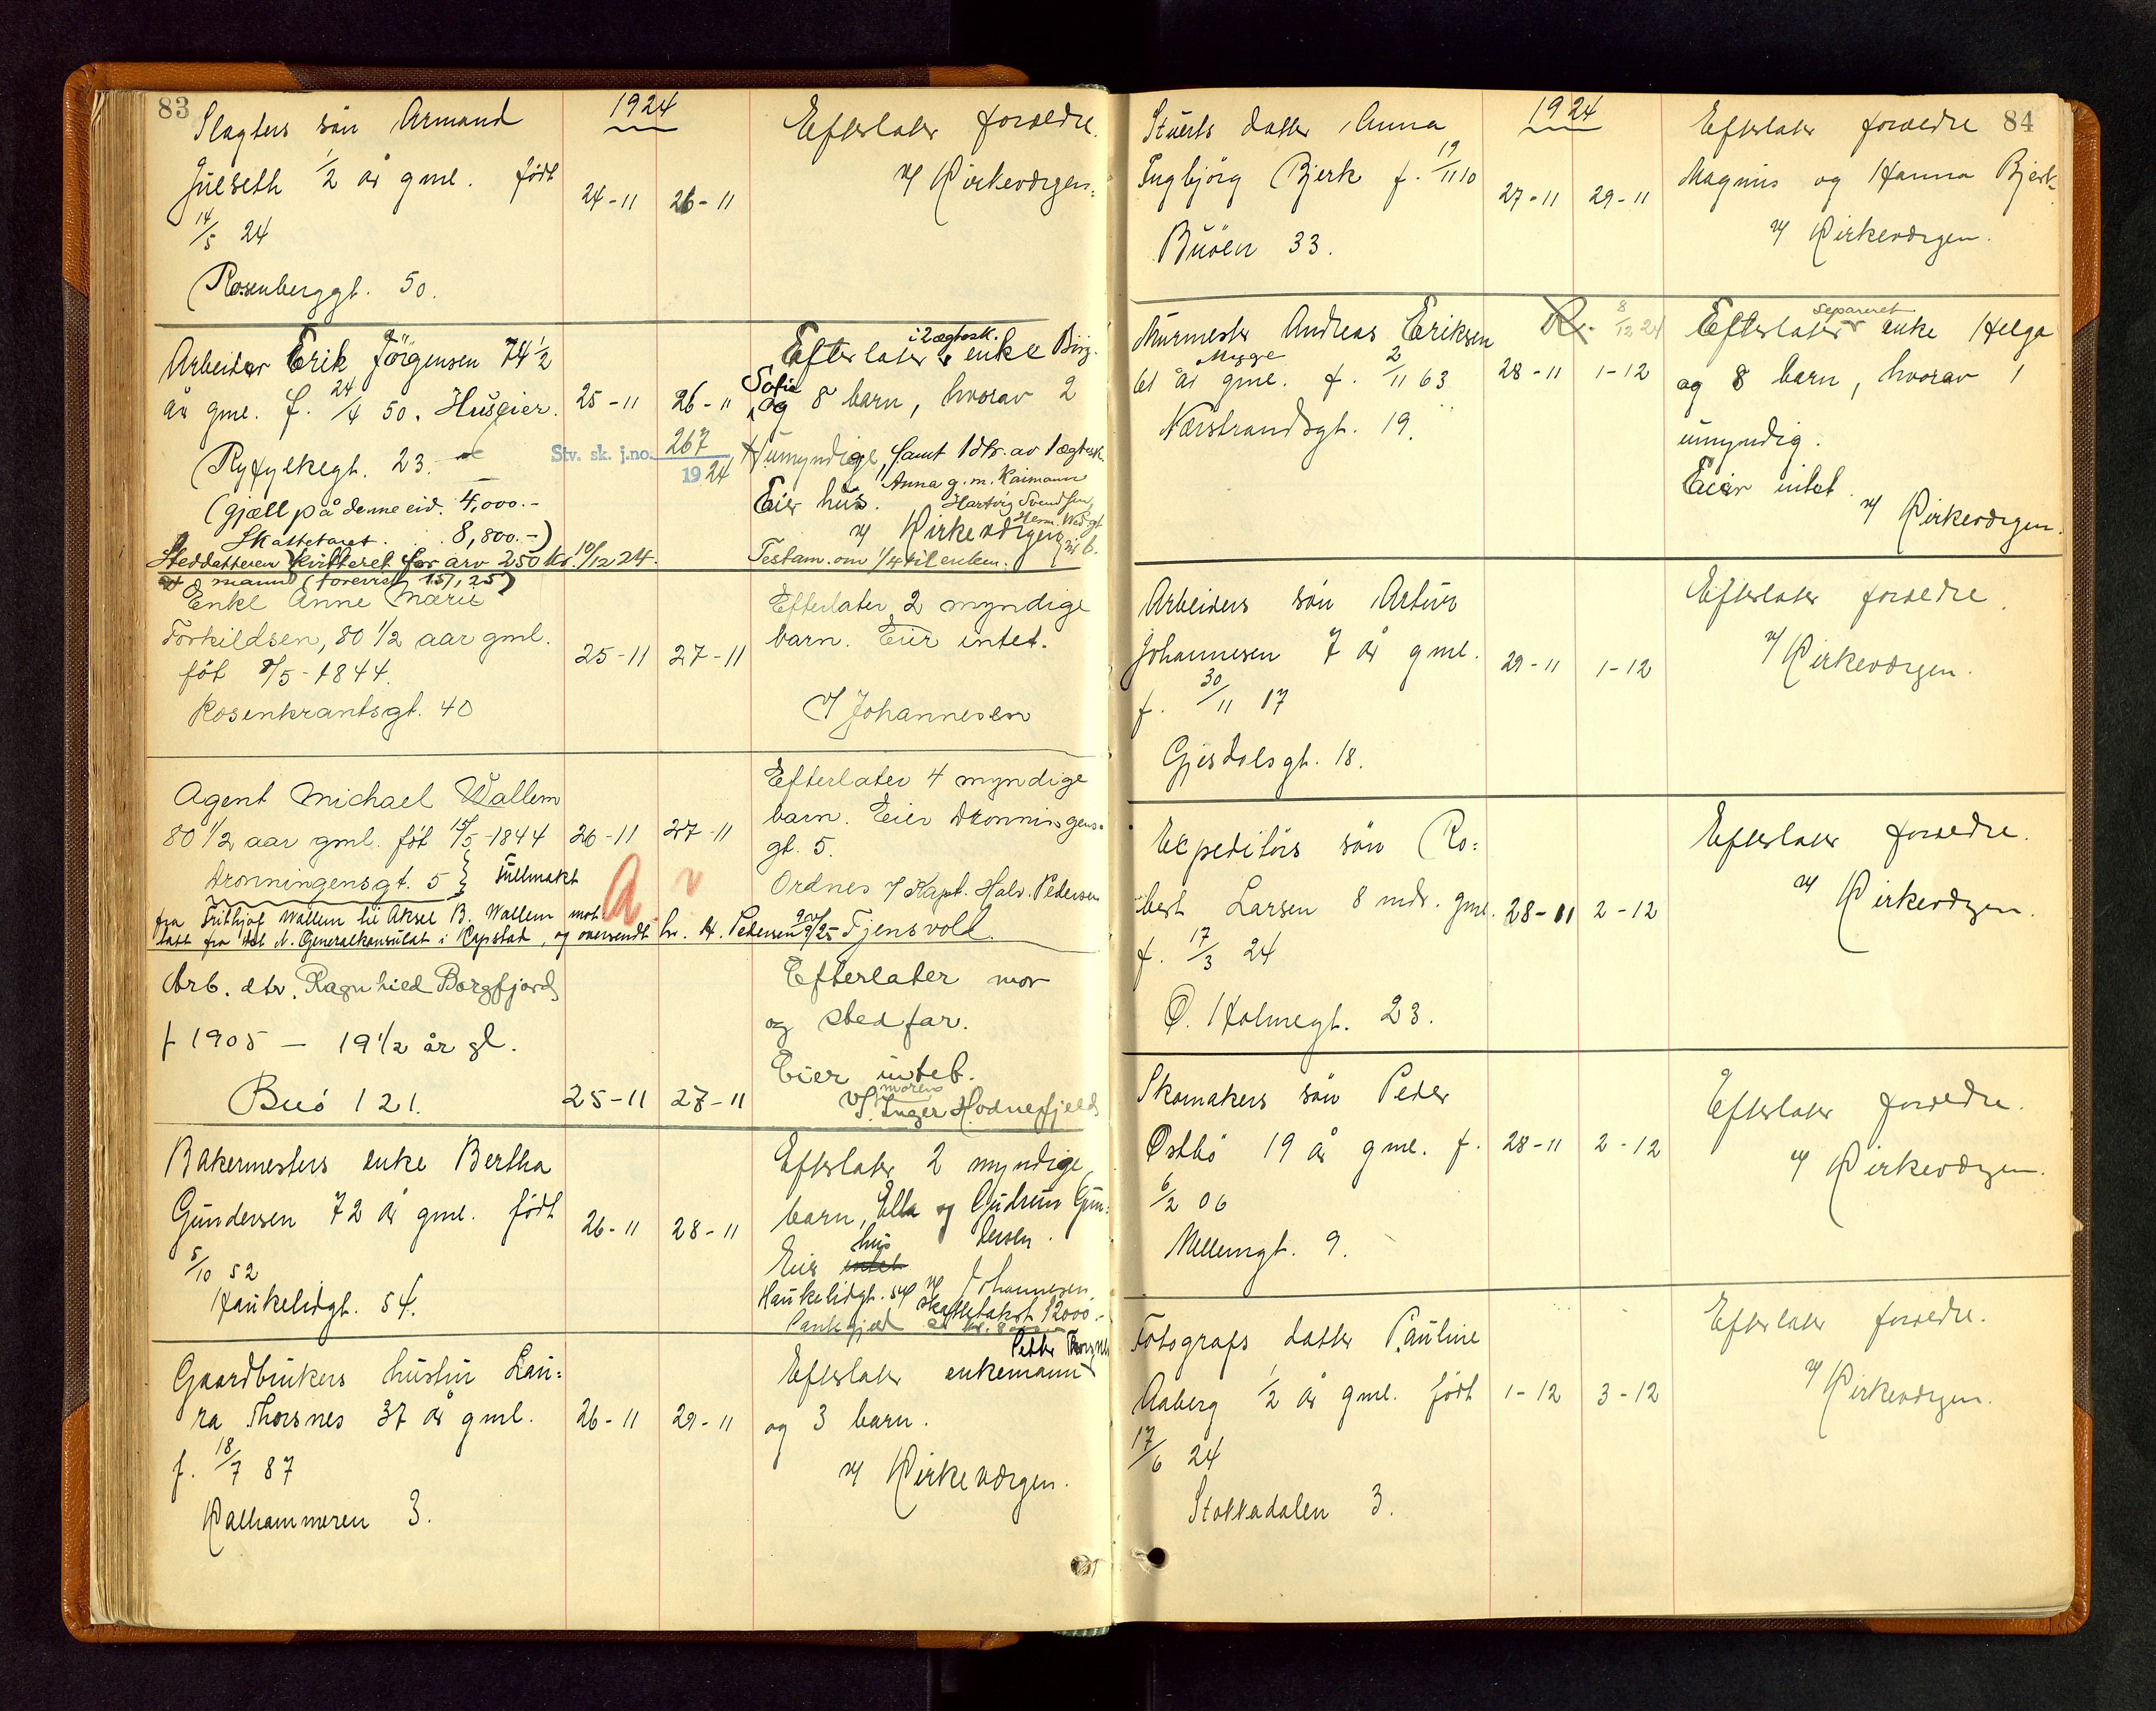 83
1924
Slagters søn Armand
Julseth 1/2 år gml. født
14/5 24
Rosenberggt. 50.
24-11 26-11
Efterlater forældre.
v/ Kirkeværgen.
Arbeider Erik Jörgensen 74 1/2
år gml. f. 24/4 50. Huseier.
Ryfylkegt. 23.
(gjæll på denne eid. 4,000.-
Skattetaxt . . 8,800.-)
Steddatteren kvitteret for arv 250 kr. 10/12 24.
mann (forevist 15/1 25)
25-11 26-11
Stv. sk. j.no. 267
1924
i 2 ægtesk.
Efterlater enke Birg.
Sofie
og 8 barn, hvorav 2
umyndige, samt 1 dtr. av 1 ægtesk.
Anna g. m. Kaimann
Eier hus. Hartvig Svendsen,
v/ Kirkeværgen
Testam. om 1/4 til enken.
Enke Anne Marie
Torkildsen, 80 1/2 aar gml.
föt 8/5-1844.
Rosenkrantsgt. 40
25-11 27-11
Efterlater 2 myndige
barn. Eier intet.
v/ Johannesen
Agent Michael Wallem
80 1/2 aar gml. föt 15/5-1844
Dronningensgt. 5 } Fullmakt
fra Frithjof Wallem til Aksel B. Wallem mot-
tatt fra det N. Generalkonsulat i Kapstad, og oversendt hr. H. Pedersen 9/2 25
26-11 27-11
Efterlater 4 myndige
barn. Eier Dronningens-
gt. 5.
Ordnes v/ Kapt. Halv. Pedersen
Tjensvoll.
Arb. dtr. Ragnhild Borgfjord
f 1905 — 19 1/2 år gl.
Buö 121.
25-11 27-11
Efterlater mor
og stedfar.
Eier intet.
moren
v/ Inger Hodnefjeld
Bakermesters enke Bertha
Gundersen 72 år gml. født
5/10 52
Haukelidgt. 54.
26-11 28-11
Efterlater 2 myndige
barn, Ella og Gudrun Gun-
dersen.
hus
Eier intet
v/ Johannesen.
Haukelidgt. 54 skattetakst 12000.-
Pantegjæl
Gaardbrukers hustru Lau-
ra Thorsnes 37 år gml.
f. 18/7 87
Kalhammeren 3.
26-11 29-11
Efterlater enkemann
og 3 barn.
v/ Kirkeværgen.
84
1924
Stuerts datter Anna
Ingbjörg Bjerk f. 19/11 10
Buöen 33.
27-11 29-11
Efterlater forældre
Magnus og Hanna Bjerk.
v/ Kirkeværgen.
Murmester Andreas Eriksen
Mygge
61 år gml. f. 2/11 63
Nærstrandsgt. 19.
8/12 24
28-11 1-12
separeret
Efterlater enke Helga
og 8 barn, hvorav 1
umyndig.
Eier intet.
v/ Kirkeværgen.
Arbeiders søn Artur
Johannesen 7 år gml.
f. 30/11 17
Gjesdalsgt. 18.
29-11 1-12
Efterlater forældre.
v/ Kirkeværgen.
Expeditörs søn Ro-
bert Larsen 8 mdr. gml.
f. 17/3 24
Ø. Holmegt. 23.
28-11 2-12
Efterlater forældre.
v/ Kirkeværgen.
Skomakers søn Peder
Østbö 19 år gml. f.
6/2 06
Mellemgt. 9.
28-11 2-12
Efterlater forældre.
v/ Kirkeværgen.
Fotografs datter Pauline
Aaberg 1/2 år gml. født
17/6 24
Stokkadalen 3.
1-12 3-12
Efterlater forældre.
v/ Kirkeværgen.